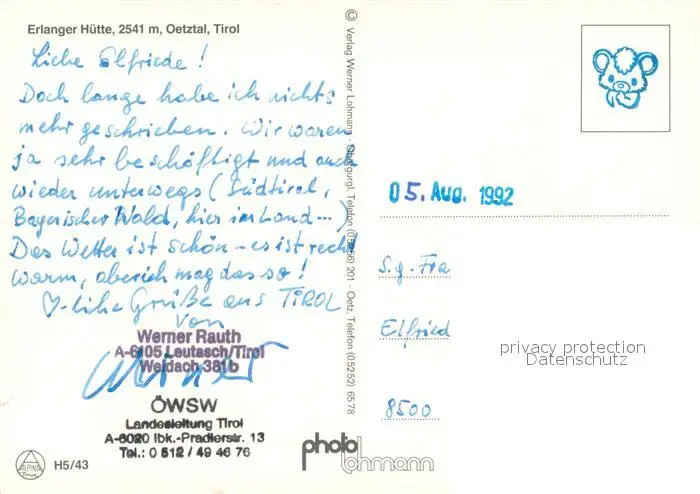 Erlanger Hütte, 2541 m, Oetztal, Tirol
Liebe Elfriede!
Doch lange habe ich nichts
mehr geschrieben. Wir waren
ja sehr beschäftigt und auch
wieder unterwegs (Südtirol,
Bayerischer Wald, hier im Land...)
Das Wetter ist schön - es ist recht
warm, aber ich mag das so!
♡-liche Grüße aus TIROL
von
Werner Rauth
A-6105 Leutasch/Tirol
Weidach 381b
Werner
ÖWSW
Landesleitung Tirol
A-6020 Ibk.-Pradlerstr. 13
Tel.: 0 512 / 49 46 76
ALPINA
H5/43
© Verlag Werner Lohmann - Obergurgl, Telefon (05256) 201 - Oetz, Telefon (05252) 6578
photo
lohmann
05. Aug. 1992
S.g. Fra
Elfried
8500
privacy protection
Datenschutz